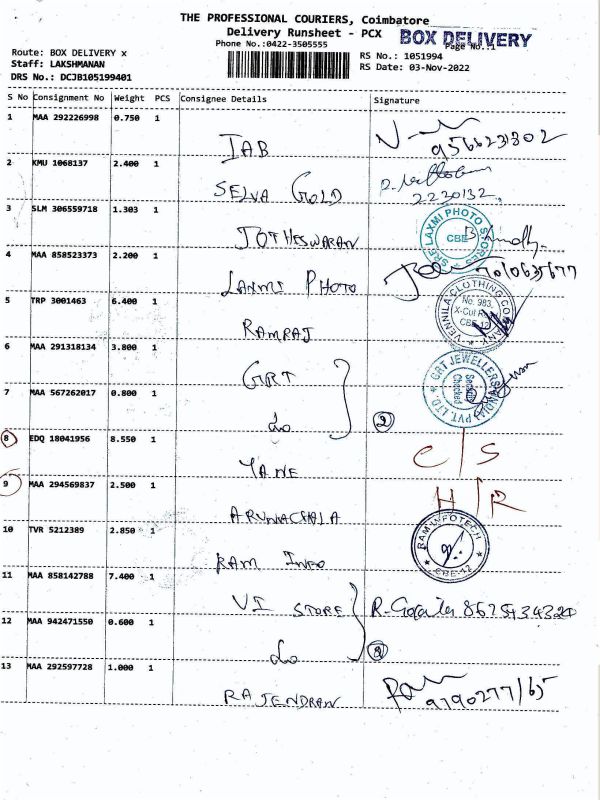 THE PROFESSIONAL COURIERS, Coimbatore
Delivery Runsheet - PCX
BOX DELIVERY
Phone No.:0422-3505555
Page No.:1
Route: BOX DELIVERY x
Staff: LAKSHMANAN
DRS No.: DCJB105199401
RS No.: 1051994
RS Date: 03-Nov-2022
S No Consignment No Weight PCS Consignee Details Signature
1 MAA 292226998 0.750 1
IAB
2 KMU 1068137 2.400 1
SELVA GOLD 2220132
3 SLM 306559718 1.303 1
JOTHESWARAN
SRE LAXMI PHOTO STORES CBE
4 MAA 858523373 2.200 1
LAXMI PHOTO
5 TRP 3001463 6.400 1
RAMRAJ
VENNILA CLOTHING COMPANY No. 983, X-Cut Road CBE-12
6 MAA 291318134 3.800 1
GRT
GRT JEWELLERS INDIA PVT. LTD Security Checked
7 MAA 567262017 0.800 1
do 2
8 EDQ 18041956 8.550 1
YANE C/S
9 MAA 294569837 2.500 1
ARUNACHALA H/R
10 TVR 5212389 2.850 1
RAM INFO
RAM INFOTECH CBE-12
11 MAA 858142788 7.400 1
VI STORE
12 MAA 942471550 0.600 1
do 2
13 MAA 292597728 1.000 1
RAJENDRAN